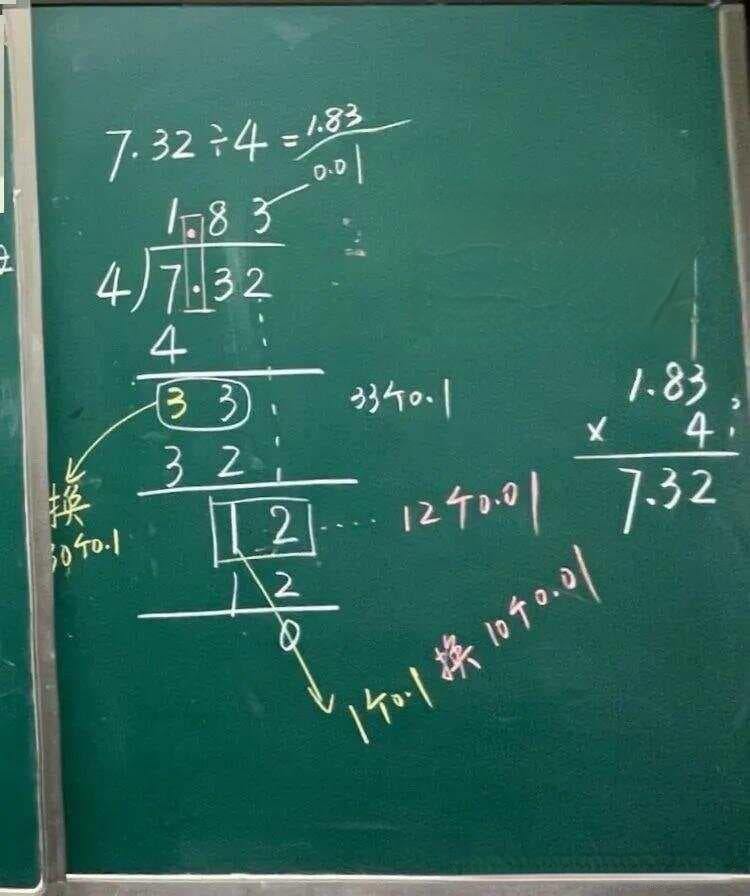 7.32÷4=1.83
0.01
1.83
4)7.32
4
33
33个0.1
32
换
30个0.1
12
12个0.01
12
0
1个0.1换10个0.01
1.83
× 4
7.32